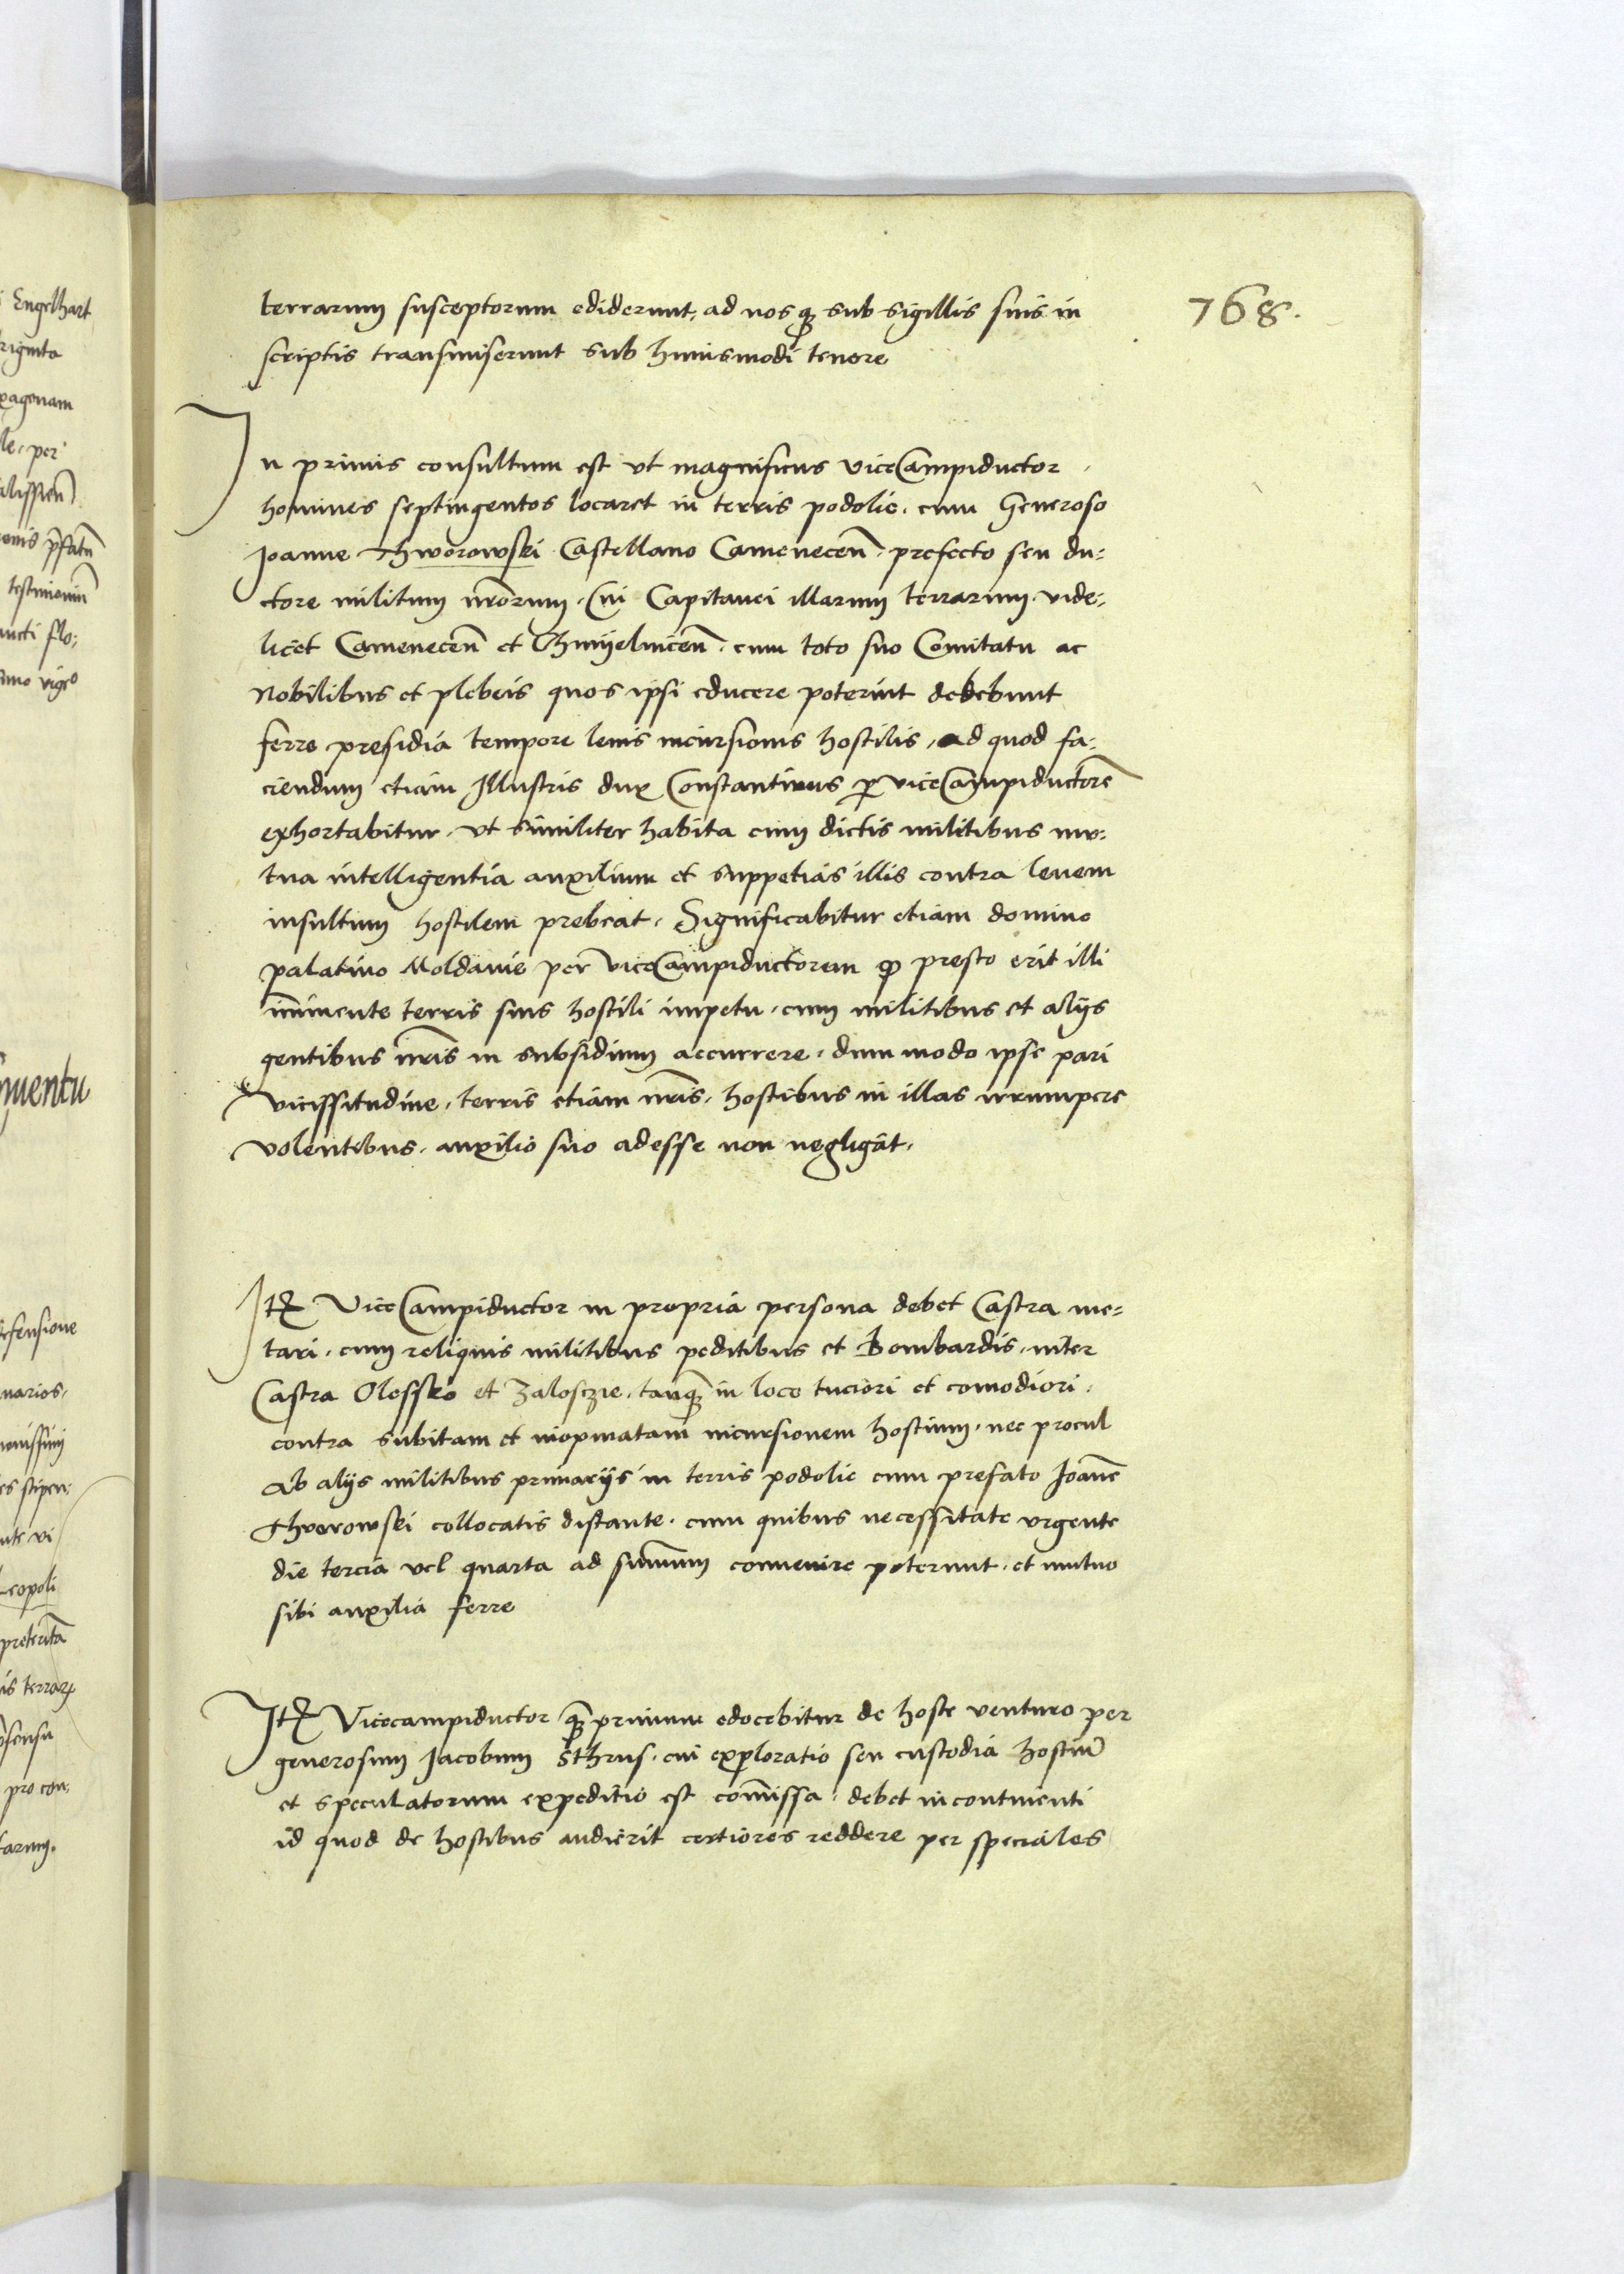 terrarum susceptorum ediderunt, ad nos q3 sub sigillis suis in
scriptis transmiserunt sub huiusmodi tenore
768.
In primis consultum est vt magnificus viceCampiductor
homines septingentos locaret in terris podolie, cum Generoso
Joanne Thworowski Castellano Camenecen̄, prefecto seu du-
ctore militum nr̄orum, Cui Capitanei illarum terrarum, vide-
licet Camenecen̄ et Chmyelnicen̄, cum toto suo Comitatu ac
Nobilibus et plebeis quos ipsi educere poterint debebunt
ferre presidia tempore lenis incursionis hostilis, ad quod fa-
ciendum etiam Illustris dux Constantinus ꝑ viceCampiductorē
exhortabitur, vt similiter habita cum dictis militibus mu-
tua intelligentia auxilium et suppetias illis contra leuem
insultum hostilem prebeat, Significabitur etiam domino
palatino Moldauie per viceCampiductorem ꝙ presto erit illi
im̄inente terris suis hostili impetu, cum militibus et alijs
gentibus nr̄is in subsidium accurrere, dum modo ipse pari
vicissitudine, terris etiam nr̄is, hostibus in illas irrumpere
volentibus, auxilio suo adesse non negligāt.
Itē viceCampiductor in propria persona debet Castra me-
tari, cum reliquis militibus peditibus et Bombardis, inter
Castra Olessko et Zalosczie, tanq̄3 in loco tuciori et comodiori,
contra subitam et inopinatam incursionem hostium, nec procul
Ab alijs militibus primarijs in terris podolie cum prefato Joanē
Thworowski collocatis distante, cum quibus necessitate vrgente
die tercia vel quarta ad sum̄um conuenire poterunt, et mutuo
sibi auxilia ferre
Itē Vicecampiductor q̄3primum edocebitur de hoste venturo per
generosum Jacobum Sthrus, cui exploratio seu custodia hostiū
et speculatorum expeditio est com̄issa, debet incontinenti
id quod de hostibus audierit certiores reddere per speciales